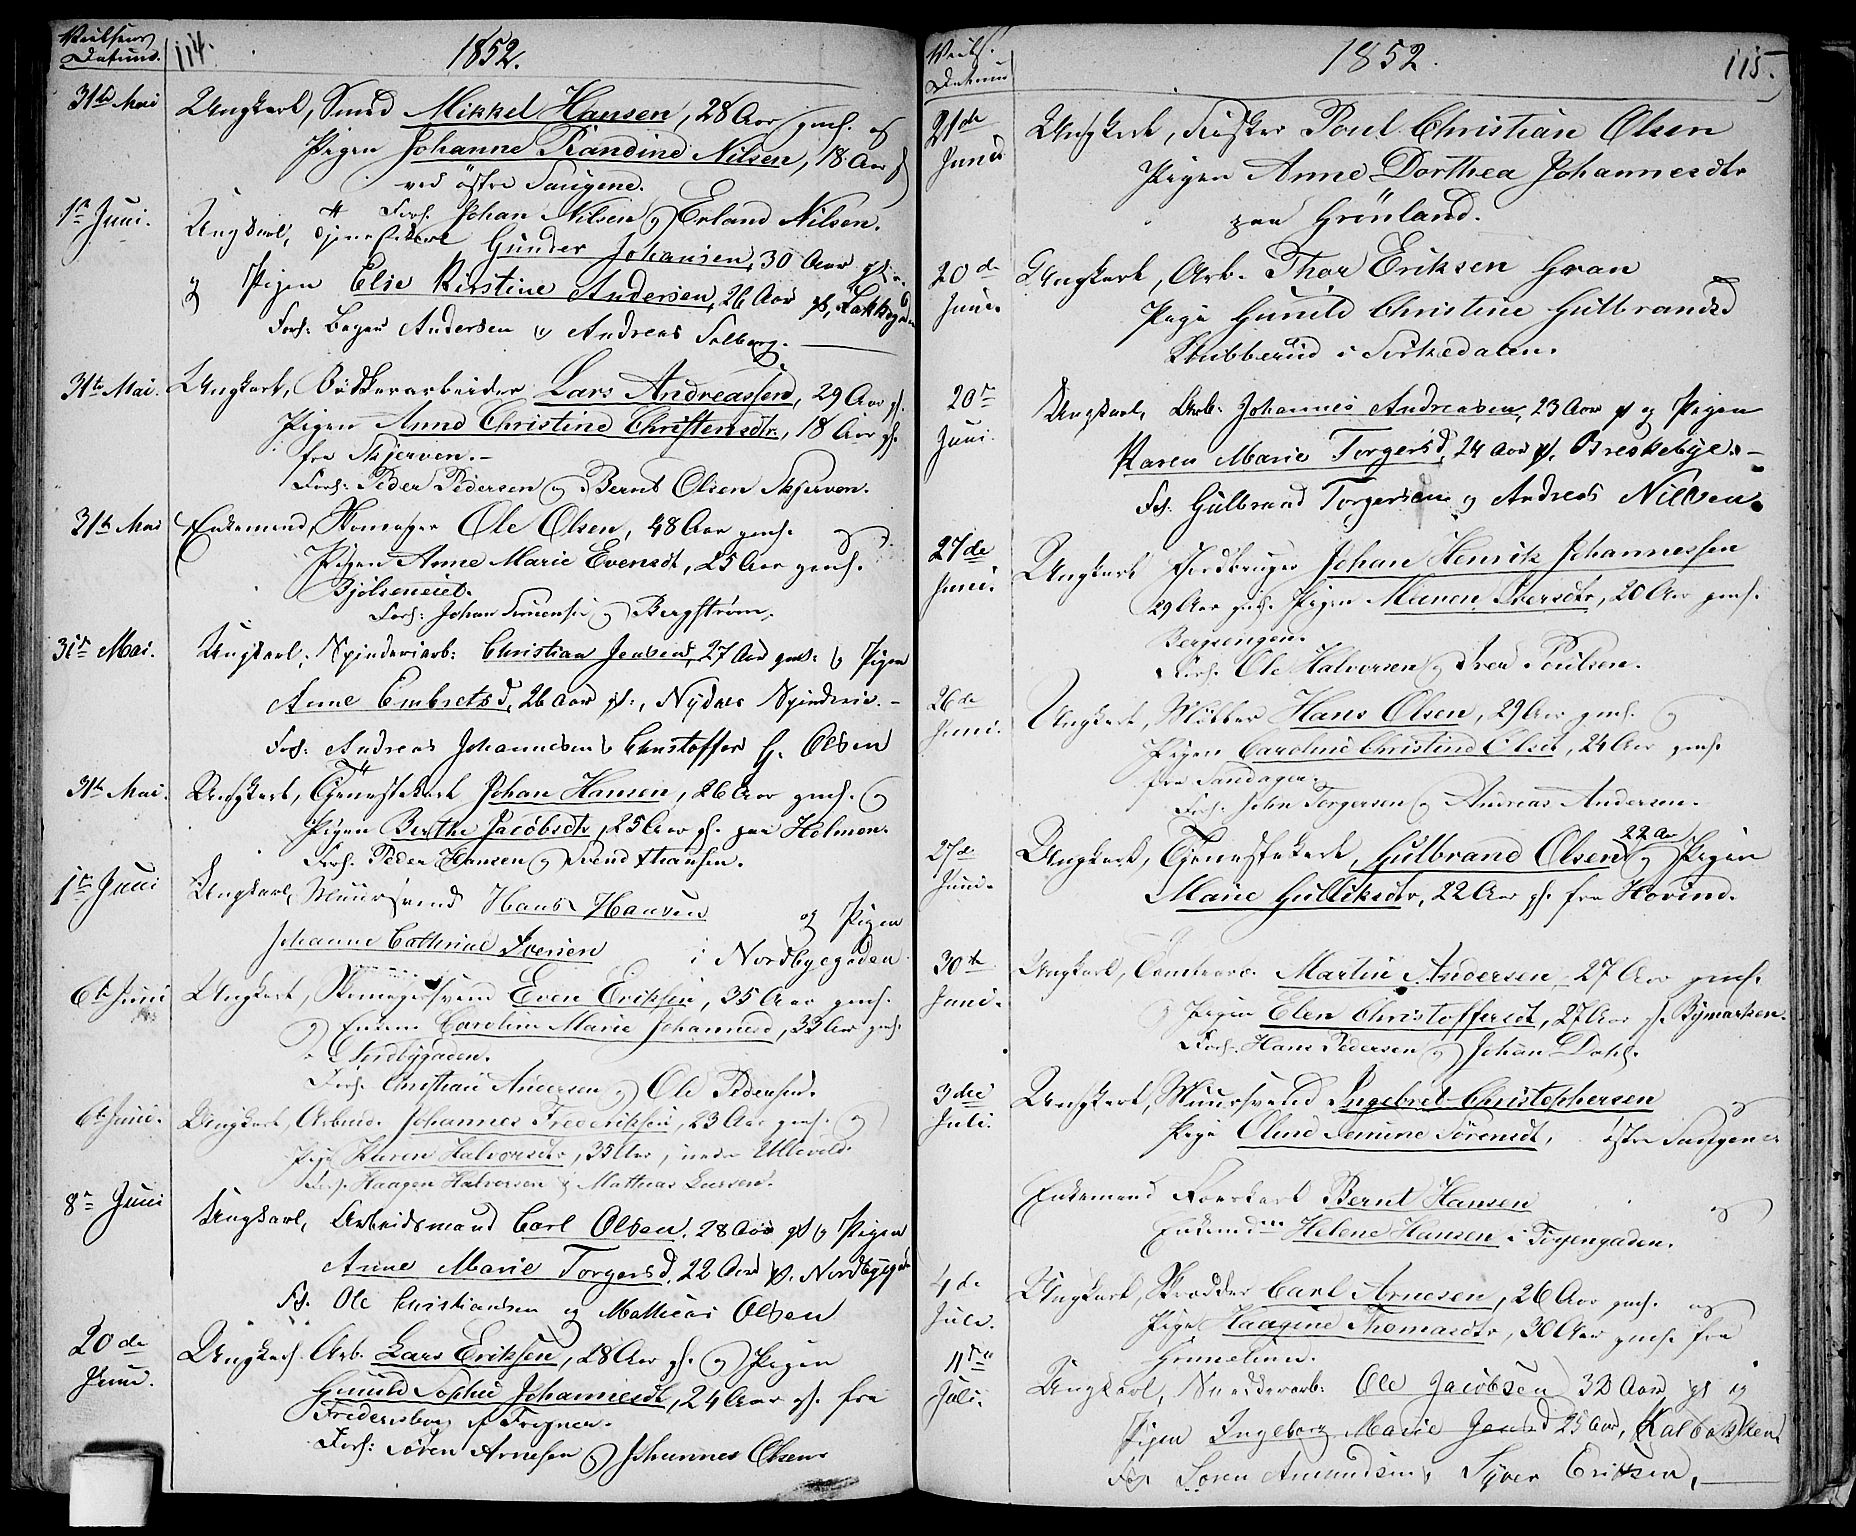 Vielsens
Datum.
114.
1852.
31te Mai
Ungkarl, Smed Mikkel Hansen, 28 Aar gmh. og
Pigen Johanne Randine Nilsen, 18 Aar gh
ved östre Saugene.
Forl. Johan Nilsen og Erland Nilsen.
1ste Juni.
Ungkarl, Tjenestekarl Gunder Johansen, 30 Aar gh.
og Pigen Else Kirstine Andersen, 26 Aar gh, Lakkegaden
Forl: Andersen og Andreas Solberg.
31te Mai.
Ungkarl, Bödkerarbeider Lars Andreassen, 29 Aar gh.
Pigen Anne Christine Christensdtr, 18 Aar gh.
fra Skjerven.-
Forl: Peder Pedersen og Bernt Olsen Skjerven.
31te Mai
Enkemand, Skomager Ole Olsen, 48 Aar gmh. og
Pigen Anne Marie Evensdt, 25 Aar gmh.
Bjölseneiet.
Forl: Johan Simensen og Bergström.
31te Mai.
Ungkarl, Spinderiarb: Christian Jensen, 27 Aar gmh: og Pigen
Anne Embretsd, 26 Aar gh., Nydals Spinderie.-
Forl: Andreas Johannesen & Christoffer H. Olsen
31te Mai.
Ungkarl, Tjenestekarl Johan Hansen, 26 Aar gmh. og
Pigen Berthe Jacobsdtr, 25 Aar gh. paa Holmen.
Forl. Peder Hansen og Svend Hansen.
1ste Juni
Ungkarl, Muursvend Hans Hansen og Pigen
Johanne Cathrine Iversen i Nordbygaden.
6te Juni
Ungkarl, Skomagersvend Even Eriksen, 35 Aar gmh.
og Enken Caroline Marie Johannesd, 33 Aar gmh.
i Nordbygaden.
Forl. Christian Andersen og Ole Pedersen.
6te Juni.
Ungkarl, Arbmd. Johannes Frederiksen, 23 Aar gmh. og
Pige Karen Halvorsdtr, 35 Aar, under Ullevold.
Forl. Haagen Halvorsen & Mathias Larsen.
8de Juni
Ungkarl, Arbeidsmand Carl Olsen, 28 Aar gh og Pigen
Anne Marie Torgersd, 22 Aar gh. Nordbygd
Fl. Ole Christiansen og Mathias Olsen
20de
Juni.
Ungkarl. Arb. Lars Eriksen, 28 Aar gh. og Pigen
Gunild Sophie Johannesdt, 24 Aar gh. fra
Fredensborg p Frogner.
Forl: Sören Arnesen og Johannes Olsen
Viels.
Datum
1852.
115.
21de
Juni
Ungkarl, Fisker Poul Christian Olsen
Pigen Anne Dorthea Johannesdtr
paa Grönland.
20de
Juni.
Ungkarl, Arb. Thor Eriksen Gran
Pige Gunild Christine Gulbrandsd
Stubberud i Sörkedalen.
20de
Juni.
Ungkarl, Arb. Johannes Andreasen, 23 Aar gh og Pigen
Karen Marie Torgersd, 24 Aar gh. Breskebye.-
Fl. Gulbrand Torgersen og Andreas Nilsen.
27de
Juni.
Ungkarl Jordbruger Johan Henrik Johannessen
29 Aar gmh. Pigen Maren Iversdtr, 20 Aar gmh.
Bergsengen.
Forl. Ole Halvorsen og Iver Poulsen.
26de
Juni.
Ungkarl, Möller Hans Olsen, 29 Aar gmh. og
Pigen Caroline Christine Olsdt, 24 Aar gmh.
fra Sandager.
Forl. John Torgersen og Andreas Andersen.
27de
Juni.
Ungkarl, Tjenestekarl, Gulbrand Olsen 22 Aar og Pigen
Marie Gulliksdtr, 22 Aar gh. fra Hovind.
30te
Juni.
Ungkarl, Tömterarb. Martin Andersen 27 Aar gmh.
og Pigen Elen Christoffersdt, 27 Aar gh. Bymarken.
Forl. Hans Pedersen og Johan Dahl.
3die
Juli.
Ungkarl, Muursvend Ingebret Christophersen og
Pige Oline Semine Sörensdt, östre Saugene
Enkemand Bernt Hansen og
Enkemd Helene Hansen i Töyengaden.
4de
Juli.
Ungkarl, Skrædder Carl Arnesen, 26 Aar gmh. og
Pige Haagine Thomasdtr, 30 Aar gmh. fra
Grünelunn.
11te
Juli.
Ungkarl, Snedkerarb: Ole Jacobsen 32 Aar gh og
Pigen Ingeborg Marie Jensd 25 Aar, Kalbakken
Fl Sören Amundsen & Syver Eriksen.